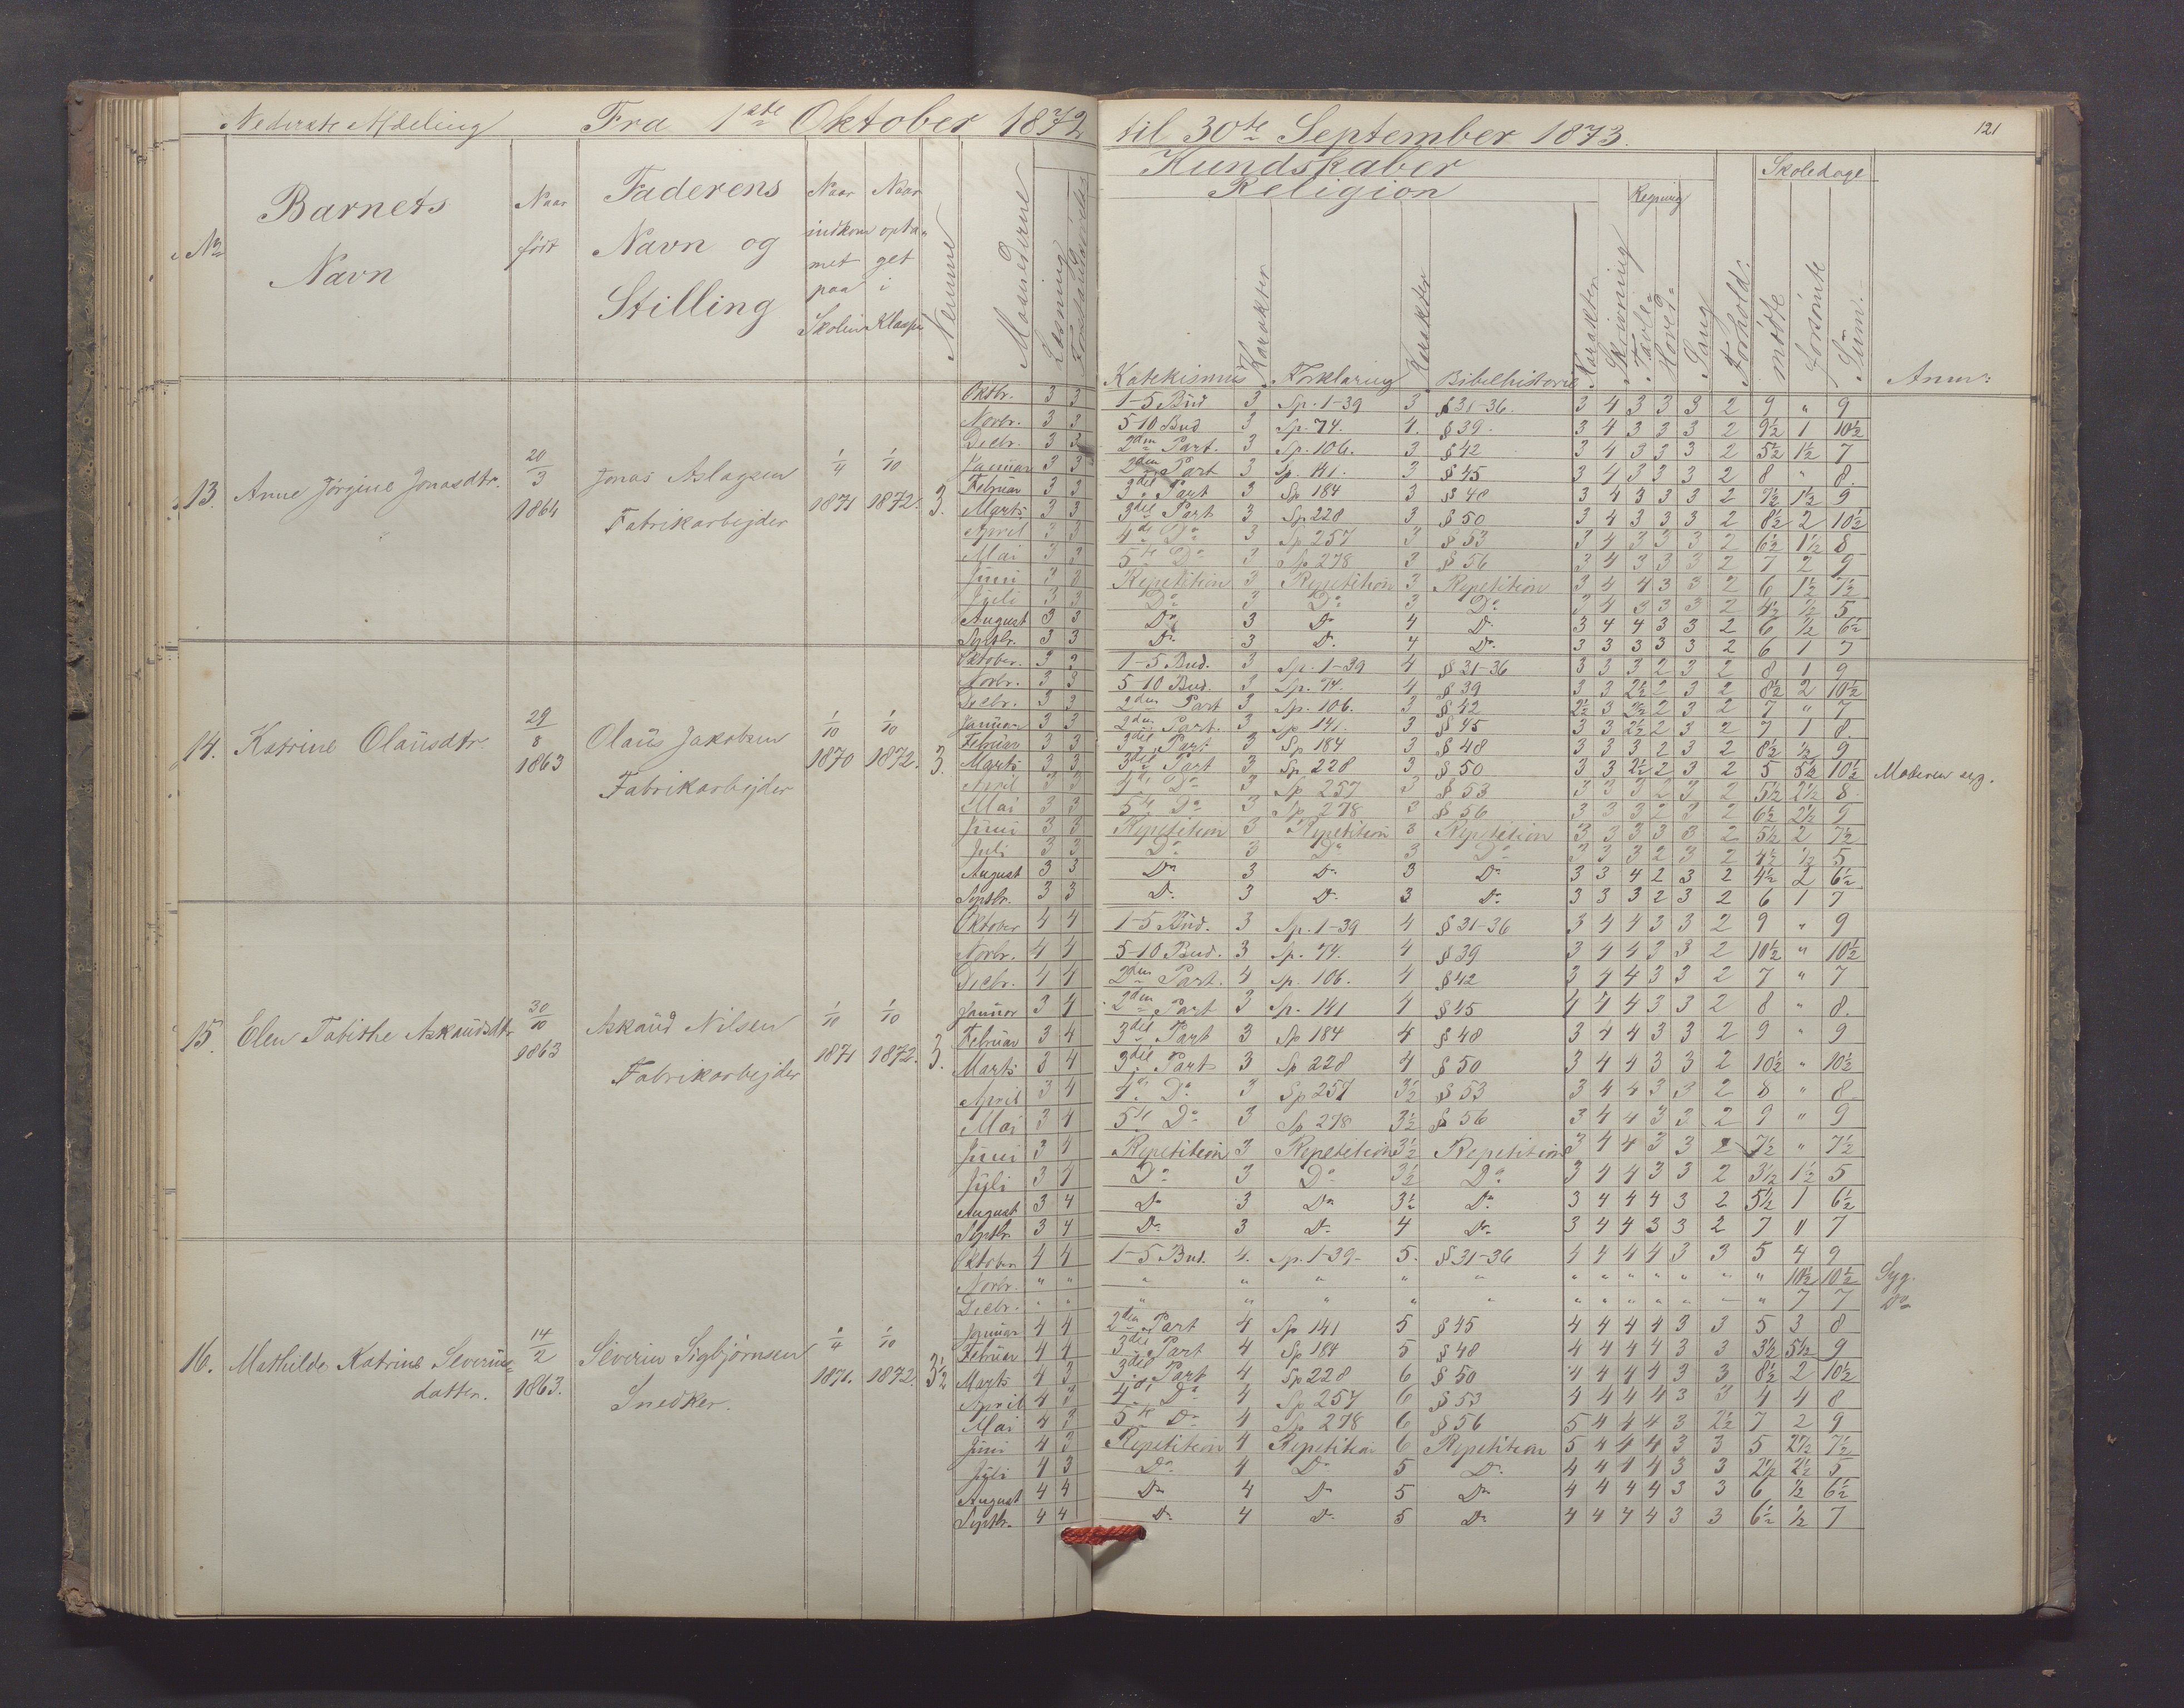 Nederste Afdeling Fra 1ste Oktober 1872 til 30te September 1873. 121
Kundskaber Skoledage
Religion Regning
No Barnets Navn Naar født Faderens Navn og Stilling Naar indkommet paa Skolen Naar optaget i Klassen Nemme Maanederne Læsning Katekismus Karakter Forklaring Karakter Bibelhistorie Karakter Skrivning Tavle- Hoved- Sang Forhold: mødte forsømte Sum. Anm:
13. Anne Jørgine Jonasdtr. 20/3 1864 Jonas Aslagsen Fabrikarbejder 1/4 1871 1/10 1872. 3.
Oktbr. 3 3 1-5 Bud 3 Sp. 1-39 3 § 31-36. 3 4 3 3 3 2 9 " 9
Novbr. 3 3 5-10 Bud 3 Sp. 74. 4. § 39. 3 4 3 3 3 2 9½ 1 10½
Decbr. 3 3 2den Part. 3 Sp. 106. 3 § 42 3 4 3 3 3 2 5½ 1½ 7
Januar 3 3 2den Part 3 Sp. 141. 3 § 45 3 4 3 3 3 2 8 " 8.
Februar 3 3 3die Part 3 Sp 184 3 § 48 3 4 3 3 3 2 7½ 1½ 9
Marts 3 3 3die Part 3 Sp 228 3 § 50 3 4 3 3 3 2 8½ 2 10½
April 3 3 4de Do 3 Sp 257 3 § 53 3 4 3 3 3 2 6½ 1½ 8
Mai 3 3 5te Do 3 Sp 278 3 § 56 3 4 3 3 3 2 7 2 9
Juni 3 3 Repetition 3 Repetition 3 Repetition 3 4 4 3 3 2 6 1½ 7½
Juli 3 3 Do 3 Do 3 Do 3 4 3 3 3 2 4½ ½ 5
August 3 3 Do 3 Do 4 Do 3 4 4 3 3 2 6 ½ 6½
Septbr. 3 3 Do 3 Do 4 Do 3 3 3 3 3 2 6 1 7
14. Katrine Olausdtr. 29/8 1863 Olaus Jakobsen Fabrikarbejder 1/10 1870 1/10 1872. 3.
Oktober. 3 3 1-5 Bud. 3 Sp. 1-39 4 § 31-36 3 3 3 2 3 2 8 1 9
Novbr. 3 3 5-10 Bud. 3 Sp. 74. 4 § 39 3 3 2½ 2 3 2 8½ 2 10½
Decbr. 3 3 2den Part 3 Sp. 106. 3 § 42 2½ 3 2½ 2 3 2 7 " 7
Januar 3 3 2den Part. 3 Sp 141. 3 § 45 3 3 2½ 2 3 2 7 1 8.
Februar 3 3 3die Part 3 Sp 184 3 § 48 3 3 3 2 3 2 8½ ½ 9
Marts 3 3 3die Part 3 Sp 228 3 § 50 3 3 2½ 2 3 2 5 5½ 10½ Moderen syg.
April 3 3 4de Do 3 Sp 257 3 § 53 3 3 3 2 3 2 5½ 2½ 8
Mai 3 3 5te Do 3 Sp 278 3 § 56 3 3 3 2 3 2 6½ 2½ 9
Juni 3 3 Repetition 3 Repetition 3 Repetition 3 3 3 3 3 2 5½ 2 7½
Juli 3 3 Do 3 Do 3 Do 3 3 3 2 3 2 4½ ½ 5
August 3 3 Do 3 Do 3 Do 3 3 4 2 3 2 4½ 2 6½
Septbr. 3 3 Do 3 Do 3 Do 3 3 3 2 3 2 6 1 7
15. Elen Tabithe Askaudsdtr 30/10 1863 Askaud Nilsen Fabrikarbejder 1/10 1871 1/10 1872. 3.
Oktober 4 4 1-5 Bud. 3 Sp. 1-39 4 § 31-36 3 4 4 3 3 2 9 " 9
Novbr. 4 4 5-10 Bud. 3 Sp. 74. 4 § 39 3 4 4 3 3 2 10½ " 10½
Decbr. 4 4 2den Part. 4 Sp. 106. 4 § 42 3 4 4 3 3 2 7 " 7
Januar 3 4 2den Part 3 Sp. 141 4 § 45 4 4 4 3 3 2 8 " 8.
Februar 3 4 3die Part 3 Sp 184 4 § 48 3 4 4 3 3 2 9 " 9
Marts 3 4 3die Part 3 Sp 228 4 § 50 3 4 4 3 3 2 10½ " 10½
April 3 4 4de Do 3 Sp 257 3½ § 53 3 4 4 3 3 2 8 " 8
Mai 3 4 5te Do 3 Sp 278 3½ § 56 3 4 4 3 3 2 9 " 9
Juni 3 4 Repetition 3 Repetition 3½ Repetition 3 4 4 3 3 2 7½ " 7½
Juli 3 4 Do 3 Do 3½ Do 3 4 4 3 3 2 3½ 1½ 5
August 3 4 Do 3 Do 3½ Do 3 4 4 4 3 2 5½ 1 6½
Septbr. 3 4 Do 3 Do 4 Do 3 4 4 3 3 2 7 " 7
16. Mathilde Katrine Severinsdatter. 14/2 1863. Severin Sigbjørnsen Snedker. 1871. 1/10 1872. 3½
Oktober 4 4 1-5 Bud. 4. Sp. 1-39- 5. § 31-36 4 4 4 4 3 3 5 4 9
Novbr. " " " " " " " " " " " " " " 10½ 10½ Syg.
Decbr. " " " " " " " " " " " " " " 7 7 Do
Januar 4 4 2den Part 4 Sp 141 5 § 45 4 4 4 4 3 3 5 3 8
Februar 4 4 3die Part 4 Sp 184 5 § 48 4 4 4 4 3 3 3½ 5½ 9
Marts 4 3 3die Part 4 Sp 228 6 § 50 4 4 4 4 3 3 8½ 2 10½
April 4 3 4de Do 4 Sp 257 6 § 53 4 4 4 4 3 3 4 4 8
Mai 4 3 5te Do 4 Sp 278 6 § 56 5 4 4 4 3 2½ 7 2 9
Juni 4 3 Repetition 4 Repetition 6 Repetition 5 4 4 4 3 3 5 2½ 7½
Juli 4 3 Do 4 Do 5 Do 4 4 4 4 3 3 2½ 2½ 5
August 4 4 Do 4 Do 5 Do 4 4 4 4 3 3 6 ½ 6½
Septbr. 4 4 Do 4 Do 5 Do 4 4 4 4 3 3 6½ ½ 7